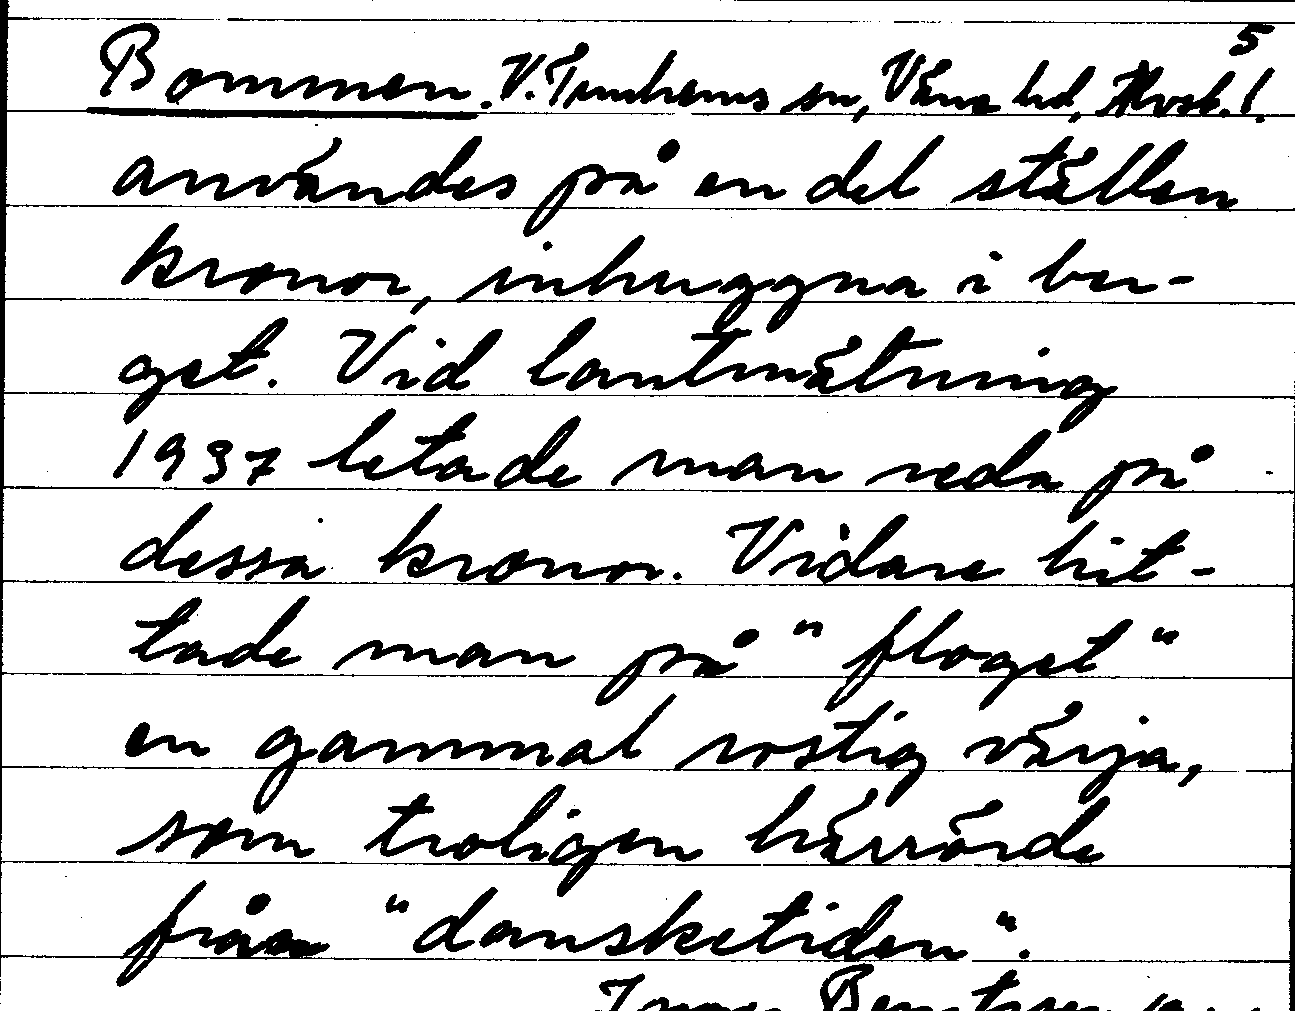 5
Bommen. V. Tunhems sn, Väne hd, Älvsb. l.
användes på en del ställen
kronor, inhuggna i ber-
get. Vid lantmätning
1937 letade man reda på
dessa kronor. Vidare hit-
tade man på "floget"
en gammal rostig värja,
som troligen härrörde
från "dansketiden".